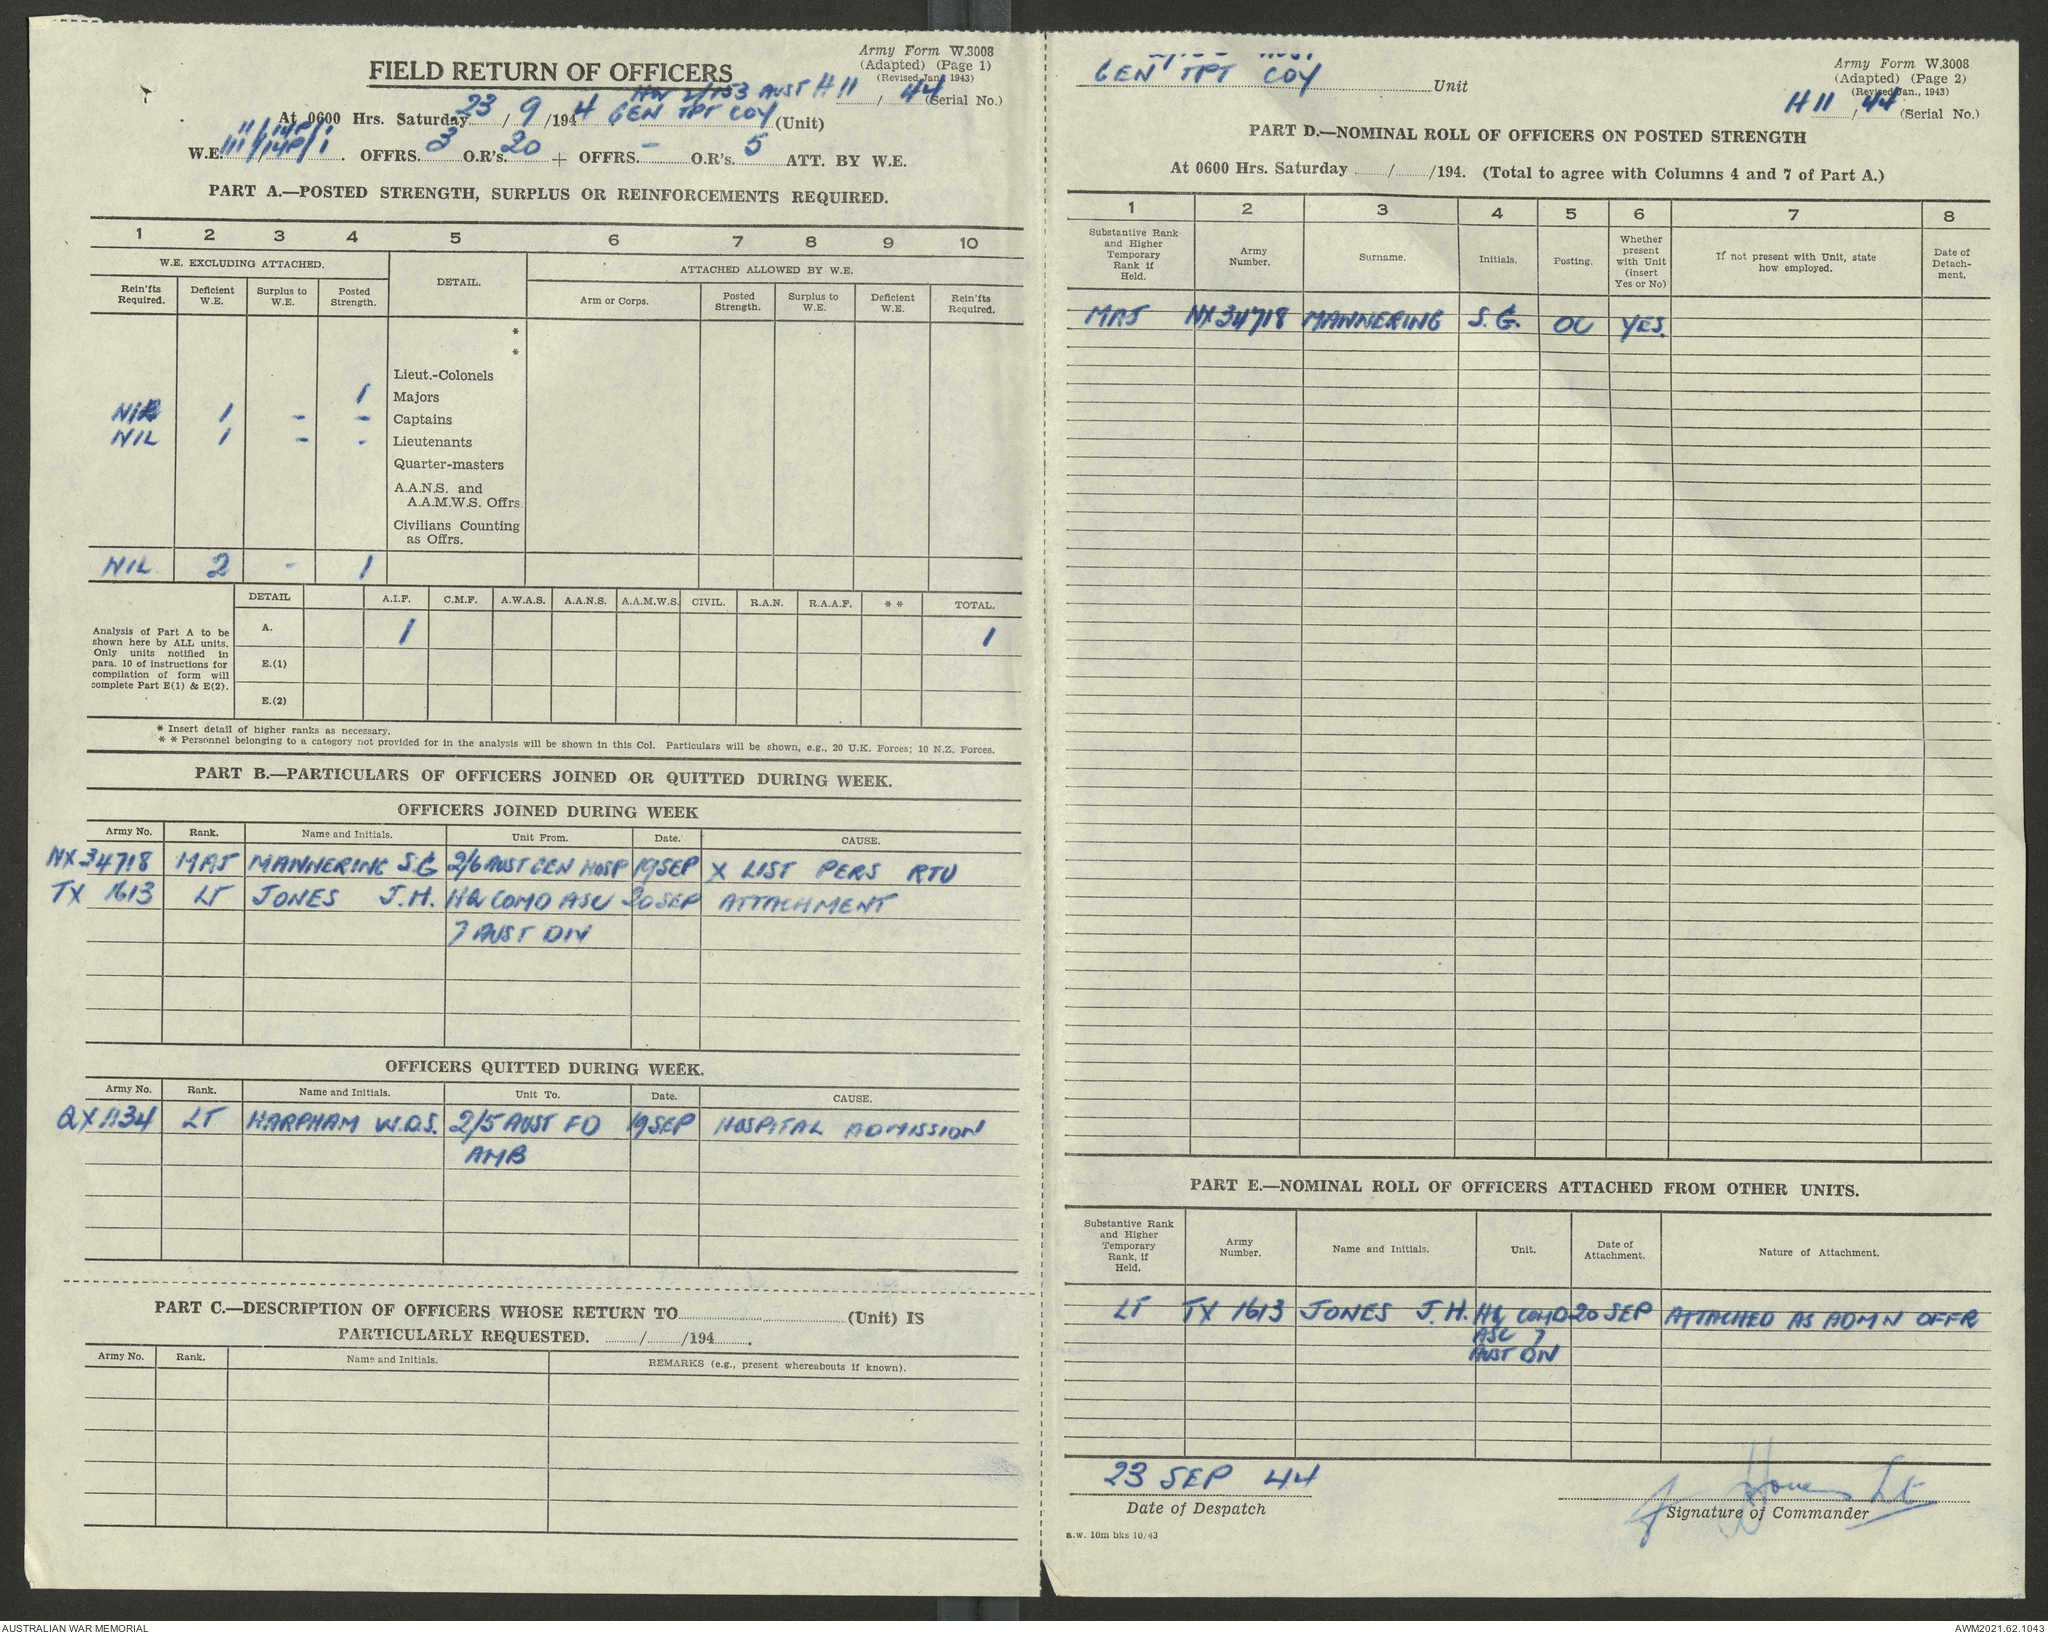 Army Form W.3008
(Adapted) (Page 1)
(Revised Jan., 1943)
FIELD RETURN OF OFFICERS
HQ 2/153 AUST H 11 / 44 (Serial No.)
At 0600 Hrs. Saturday 23 / 9 /194 4 GEN TPT COY (Unit)
11/14P/1
W.E. 111/14P/1 OFFRS. 3 O.R's. 20 + OFFRS. - O.R's. 5 ATT. BY W.E.
PART A.—POSTED STRENGTH, SURPLUS OR REINFORCEMENTS REQUIRED.
1 2 3 4 5 6 7 8 9 10
W.E. EXCLUDING ATTACHED. DETAIL. ATTACHED ALLOWED BY W.E.
Rein'fts Required. Deficient W.E. Surplus to W.E. Posted Strength. Arm or Corps. Posted Strength. Surplus to W.E. Deficient W.E. Rein'fts Required.
*
*
Lieut.-Colonels
1 Majors
NIL 1 - - Captains
NIL 1 - - Lieutenants
Quarter-masters
A.A.N.S. and
A.A.M.W.S. Offrs.
Civilians Counting
as Offrs.
NIL 2 - 1
DETAIL A.I.F. C.M.F. A.W.A.S. A.A.N.S. A.A.M.W.S. CIVIL. R.A.N. R.A.A.F. * * TOTAL.
Analysis of Part A to be
shown here by ALL units.
Only units notified in
para. 10 of instructions for
compilation of form will
complete Part E(1) & E(2).
A. 1 1
E.(1)
E.(2)
* Insert detail of higher ranks as necessary.
* * Personnel belonging to a category not provided for in the analysis will be shown in this Col. Particulars will be shown, e.g., 20 U.K. Forces; 10 N.Z. Forces.
PART B.—PARTICULARS OF OFFICERS JOINED OR QUITTED DURING WEEK.
OFFICERS JOINED DURING WEEK
Army No. Rank. Name and Initials. Unit From. Date. CAUSE.
NX34718 MAJ MANNERING S.G 2/6 AUST GEN HOSP 19 SEP X LIST PERS RTU
TX 1613 LT JONES J.H. HQ COMD ASC 20 SEP ATTACHMENT
7 AUST DIV
OFFICERS QUITTED DURING WEEK.
Army No. Rank. Name and Initials. Unit To. Date. CAUSE.
QX1134 LT HARPHAM W.D.S. 2/5 AUST FD 19 SEP HOSPITAL ADMISSION
AMB
PART C.—DESCRIPTION OF OFFICERS WHOSE RETURN TO (Unit) IS
PARTICULARLY REQUESTED. / /194 .
Army No. Rank. Name and Initials. REMARKS (e.g., present whereabouts if known).
GEN TPT COY Unit
Army Form W.3008
(Adapted) (Page 2)
(Revised Jan., 1943)
H 11 / 44 (Serial No.)
PART D.—NOMINAL ROLL OF OFFICERS ON POSTED STRENGTH
At 0600 Hrs. Saturday / /194. (Total to agree with Columns 4 and 7 of Part A.)
1 2 3 4 5 6 7 8
Substantive Rank and Higher Temporary Rank if Held. Army Number. Surname. Initials. Posting. Whether present with Unit (insert Yes or No) If not present with Unit, state how employed. Date of Detach-ment.
MAJ NX34718 MANNERING S.G. OC YES.
PART E.—NOMINAL ROLL OF OFFICERS ATTACHED FROM OTHER UNITS.
Substantive Rank and Higher Temporary Rank, if Held. Army Number. Name and Initials. Unit. Date of Attachment. Nature of Attachment.
LT TX 1613 JONES J.H. HQ COMD 20 SEP ATTACHED AS ADMN OFFR
ASC 7
AUST DIV
23 SEP 44
Date of Despatch
Lt
Signature of Commander
a.w. 10m bks 10/43
AUSTRALIAN WAR MEMORIAL
AWM2021.62.1043